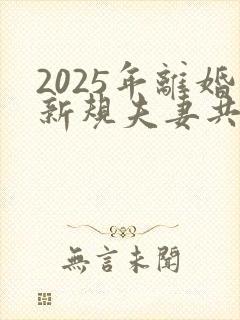 2025年離婚
新規夫妻共
無言未聞